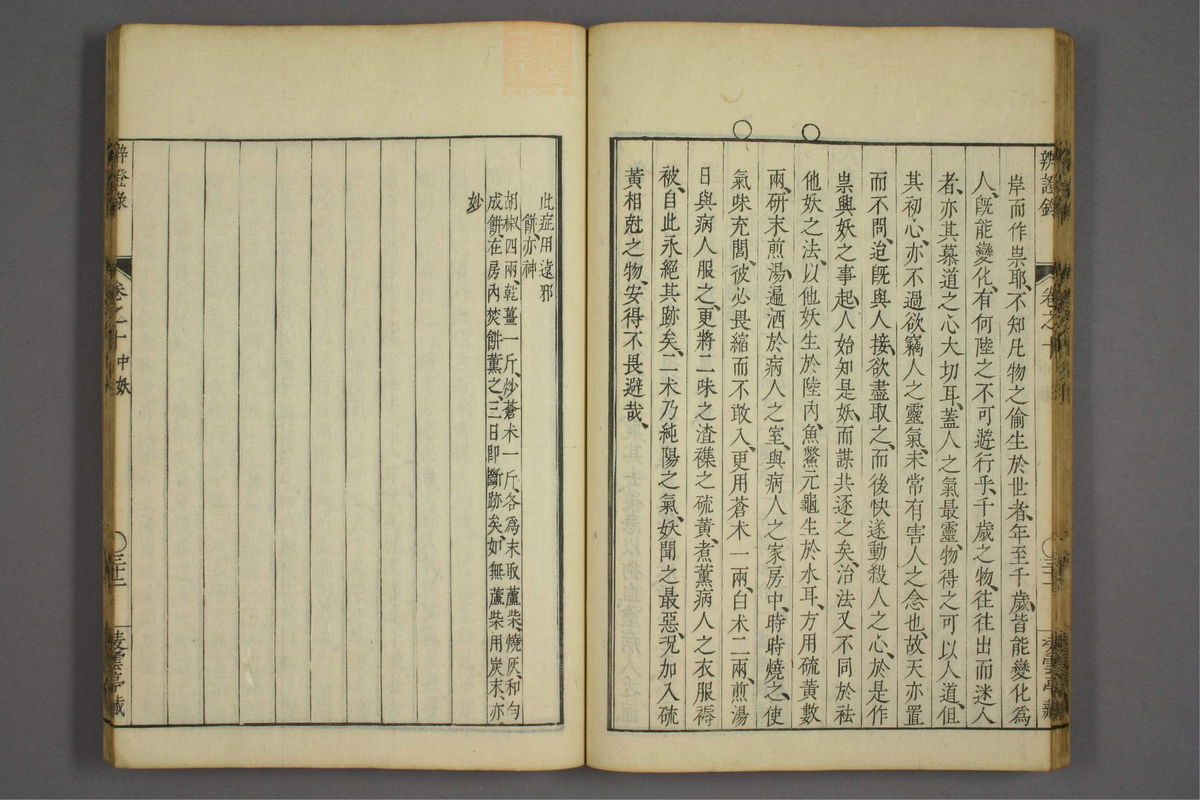 辨證錄
卷之十
岸而作祟耶、不知凡物之偷生於世者、年至千歲、皆能變化為
人、既能變化、有何陸之不可遊行乎、千歲之物、往往出而迷人
者、亦其慕道之心大切耳、蓋人之氣最靈、物得之可以人道、但
其初心、亦不過欲竊人之靈氣、未常有害人之念也、故天亦置
而不問、迨既與人接、欲盡取之、而後快遂動殺人之心、於是作
祟興妖之事起、人始知是妖、而謀共逐之矣、治法又不同於祛
他妖之法、以他妖生於陸內、魚鱉元龜生於水耳、方用硫黃數
兩、研末煎湯、遍洒於病人之室、與病人之家房中、時時燒之、使
氣味充閭、彼必畏縮而不敢入、更用蒼朮一兩、白朮二兩、煎湯
日與病人服之、更將二味之渣、襍之硫黃、煮薰病人之衣服褥
被、自此永絕其跡矣、二朮乃純陽之氣、妖聞之最惡、況加入硫
黃相尅之物、安得不畏避哉、
此症用遠邪
餅、亦神
胡椒四兩、乾薑一斤、炒蒼朮一斤、各為末取蘆柴、燒灰、和勻
成餅、在房內焚餅薰之、三日卽斷跡矣、如無蘆柴用炭末、亦
妙
辨證錄
卷之十 中妖
三十二
凌雲亭藏